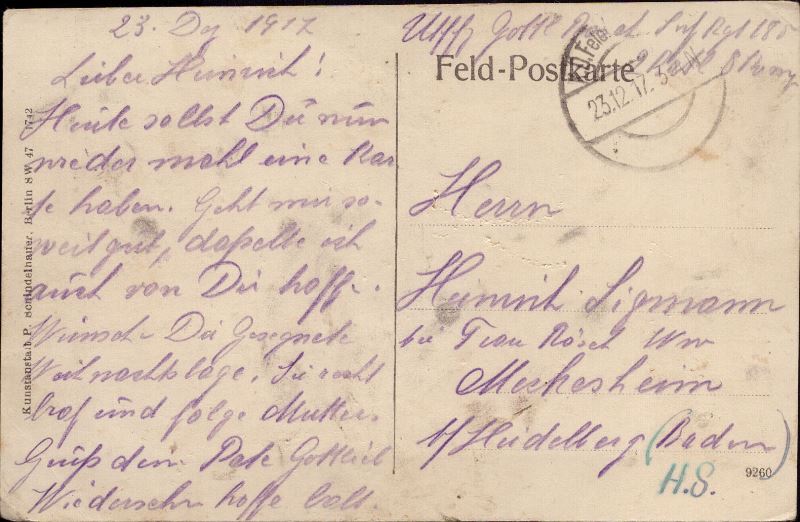 23. Dez 1917
Lieber Heinrich!
Heute sollst Du nun
wieder mahl eine Kar
te haben. Geht mir so-
weit gut, daßelbe ich
auch von Dir hoffe.
Wünsche Dir Gesegnete
Weihnachtstage. Sei recht
braf und folge Mutter.
Gruß dein Pate Gottlieb
Wiedersehn hoffe bald.
Kunstanstalt P. Schindelhauer, Berlin SW. 47 1742
Uffz Gottl Inf Rgt 185
Feld-Postkarte
23.12.17. 3-4 N
Herrn
Heinrich Sigmann
bei Frau Rösch Ww
Meckesheim
b/Heidelberg (Baden)
H.S.
9260